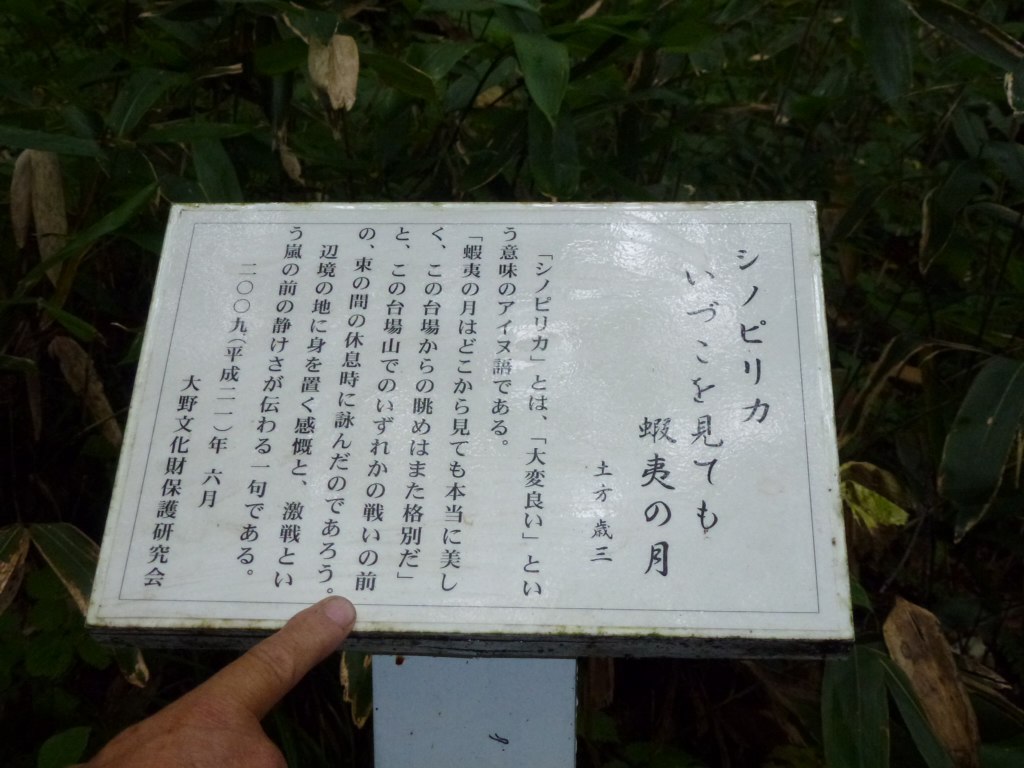 シノピリカ
いづこを見ても
蝦夷の月
土方 歳三
「シノピリカ」とは、「大変良い」とい
う意味のアイヌ語である。
「蝦夷の月はどこから見ても本当に美し
く、この台場からの眺めはまた格別だ」
と、この台場山でのいずれかの戦いの前
の、束の間の休息時に詠んだのであろう。
辺境の地に身を置く感慨と、激戦とい
う嵐の前の静けさが伝わる一句である。
二〇〇九(平成二一)年 六月
大野文化財保護研究会